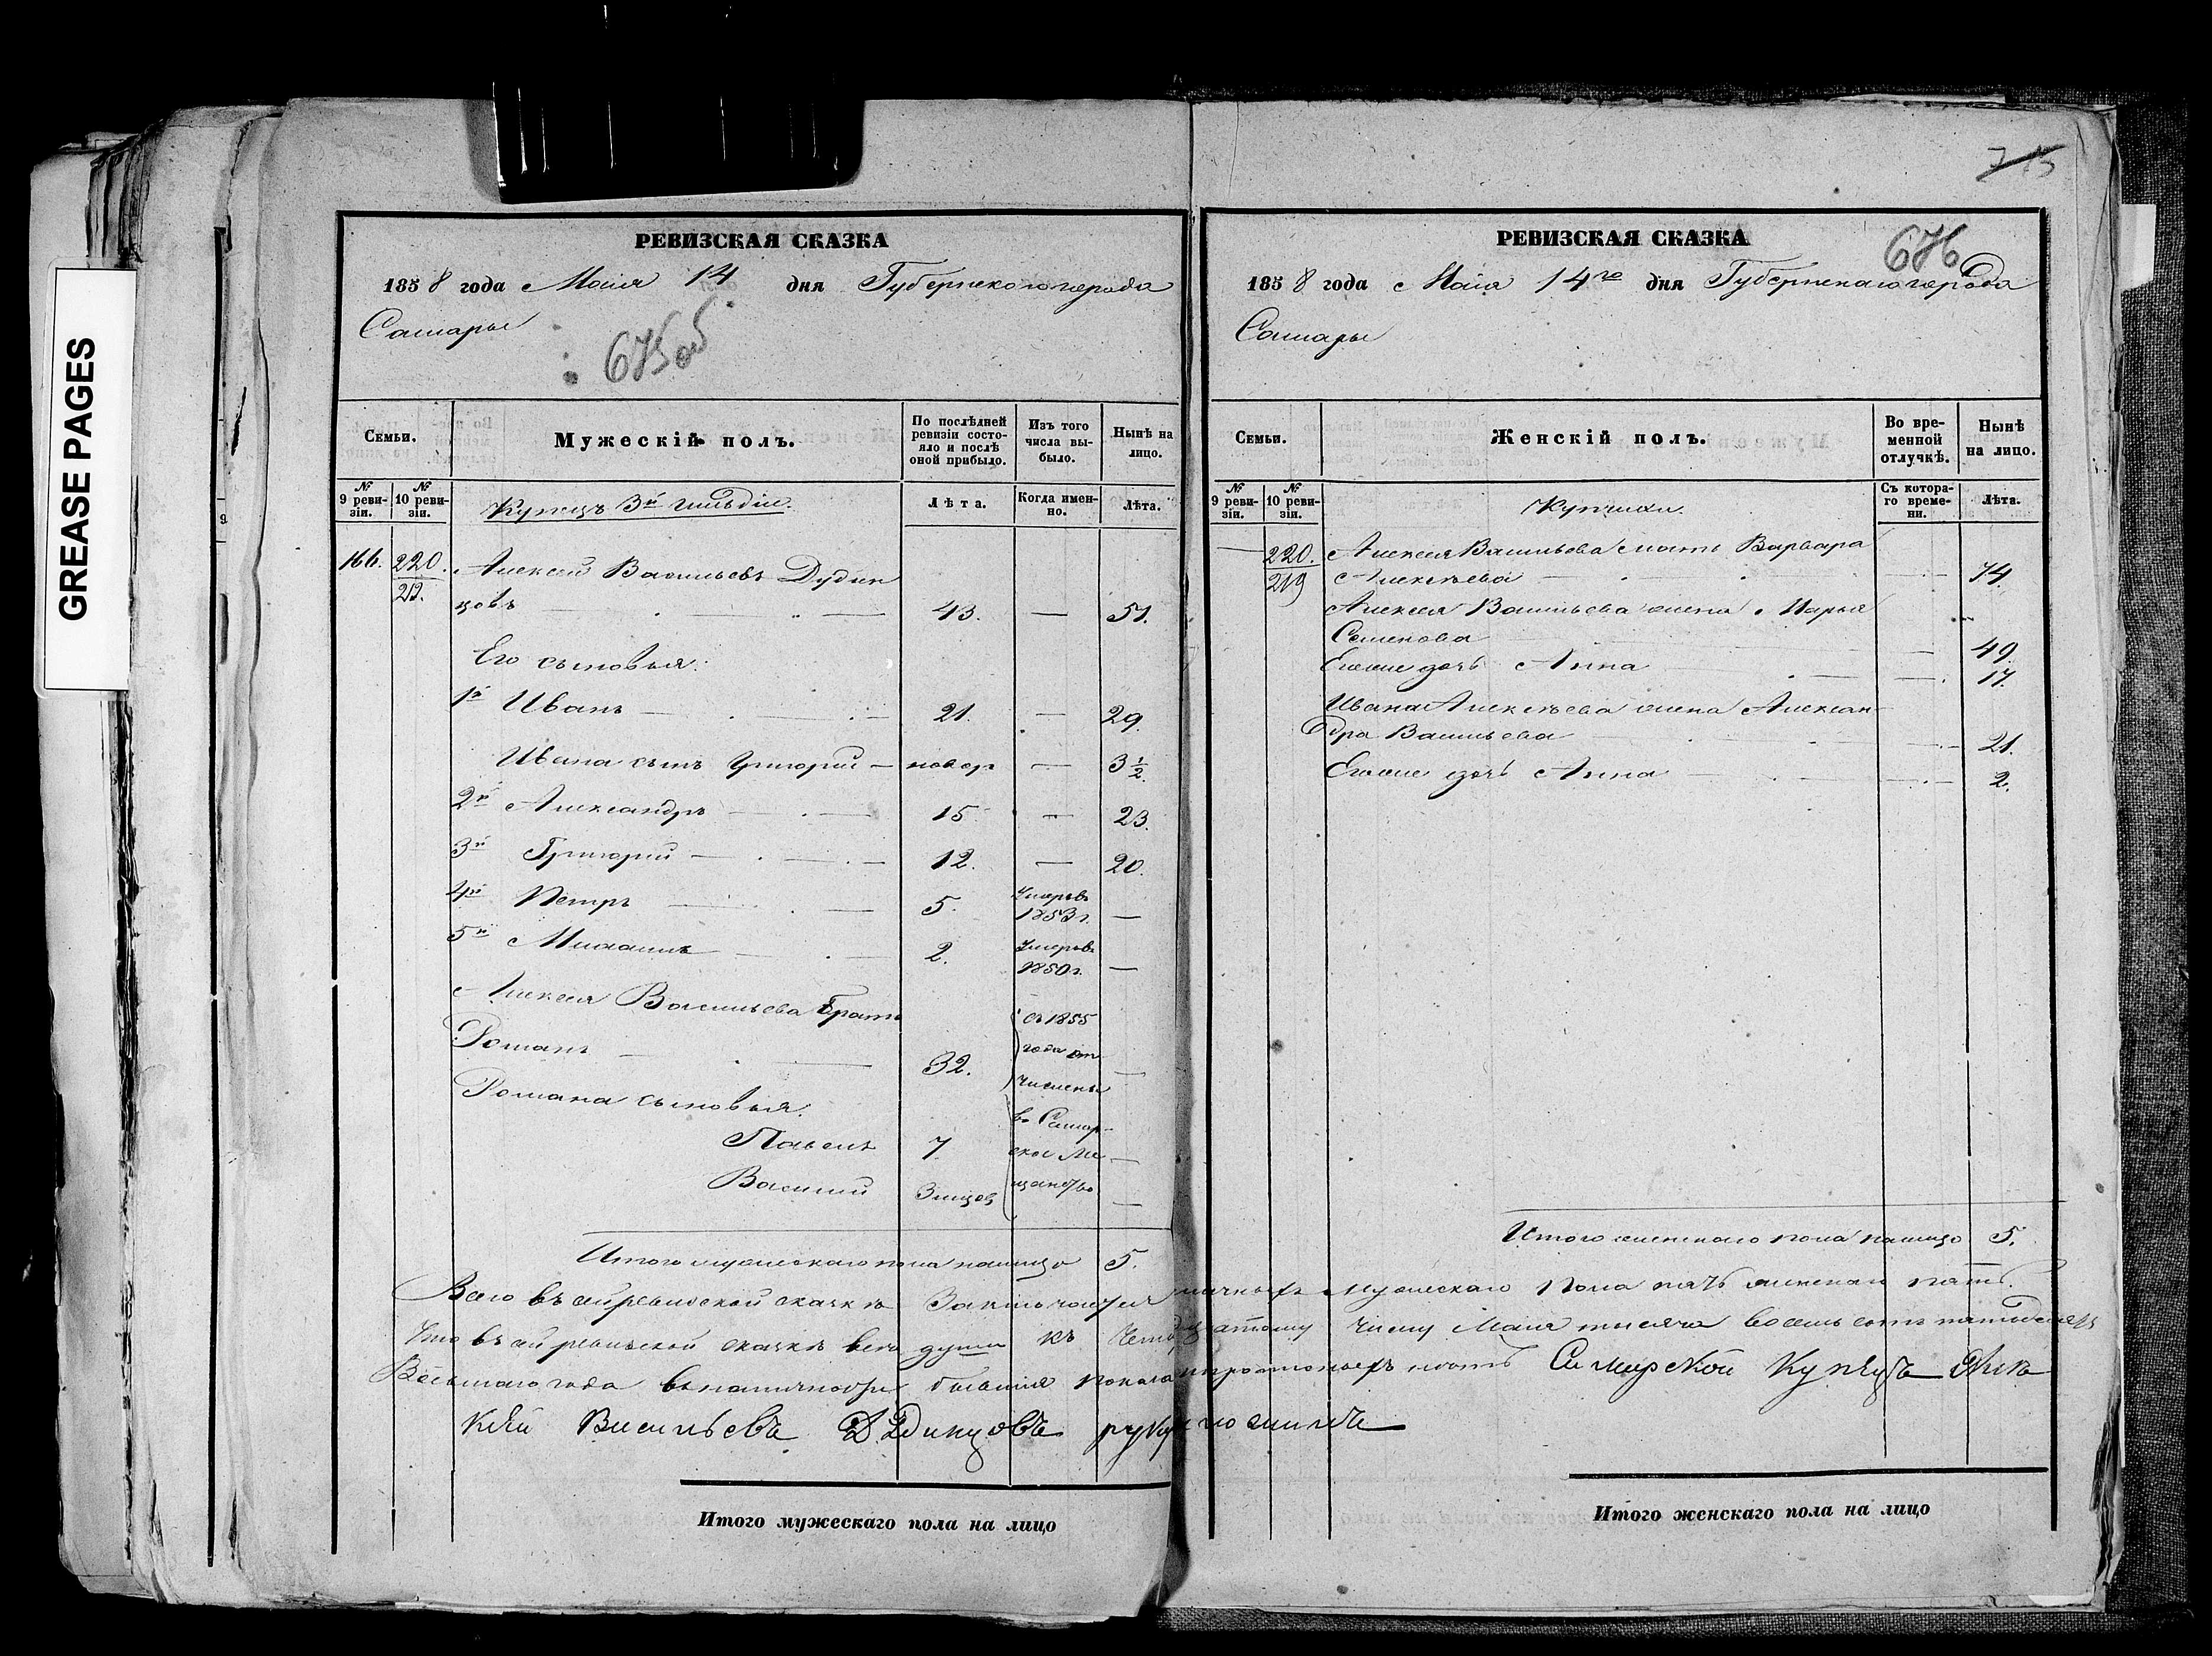 GREASE PAGES
РЕВИЗСКАЯ СКАЗКА
1858 года Маия 14 дня Губернскаго города
Самары
675об
Семьи.
Мужескій полъ.
По послѣдней ревизіи состояло и послѣ оной прибыло.
Изъ того числа выбыло.
Нынѣ на лицо.
№ 9 ревизіи.
№ 10 ревизіи.
Купецъ 3й гильдіи.
Лѣта.
Когда именно.
Лѣта.
166. 220. Алексей Васильевъ Дудин
цовъ — 43. — 51.
Его сыновья:
1й Иванъ — 21. — 29.
Ивана сынъ Григорий — новор — 3 1/2.
2й Александръ — 15 — 23.
3й Григорий — 12. — 20.
4й Петръ — 5. Умеръ в 1853 г. —
5й Михаилъ — 2. Умеръ в 1850 г. —
Алексея Васильева братъ
Романъ — 32. —
Романа сыновья.
Павелъ 7 —
Василий 3 мцов —
съ 1855
года от
числены
во Самар-
ское Ме
щанство
Итого мужескаго пола налицо 5.
РЕВИЗСКАЯ СКАЗКА
1858 года Маия 14го дня Губернскаго города
Самары
715
676
Семьи.
Женскій полъ.
Во временной отлучкѣ.
Нынѣ на лицо.
№ 9 ревизіи.
№ 10 ревизіи.
Купчихи.
Съ котораго времени.
Лѣта.
— 220. Алексея Васильева мать Варвара
219 Алексѣева — 74.
Алексея Васильева жена Марья
Семенова — 49.
Ихже дочь Анна — 17.
Ивана Алексѣева жена Алексан-
дра Васильева — 21.
Ихже дочь Анна — 2.
Итого женскаго пола налицо 5.
Всего въ сей ревизской сказкѣ Заключается наличныхъ мужескаго пола пять женскаго пять.
Что въ сей ревизской сказкѣ всѣ души къ Четырнадцатому числу Маия тысяча восемь сотъ пятьдесятъ
Восьмаго года въ наличности бывшия показаны пропущеныхъ нѣтъ Самарской Купецъ Але
кѣй Васильевъ Дудинцовъ руку приложилъ
Итого мужескаго пола на лицо
Итого женскаго пола на лицо